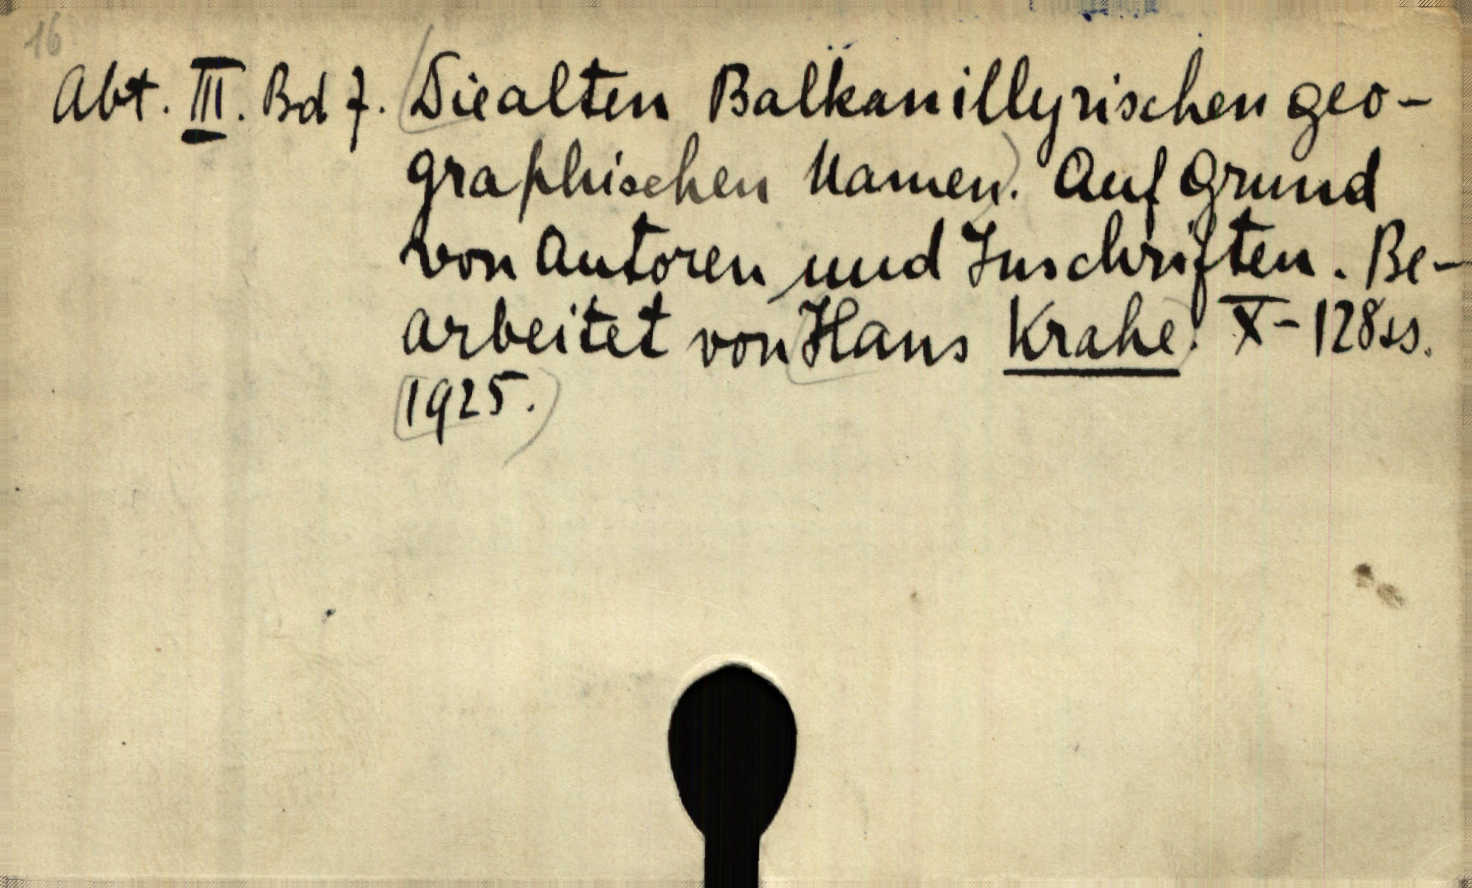 16
Abt. III. Bd 7. Die alten Balkanillyrischen geo-
graphischen Namen. Auf Grund
von Autoren und Inschriften. Be-
arbeitet von Hans Krahe. X-128ss.
1925.